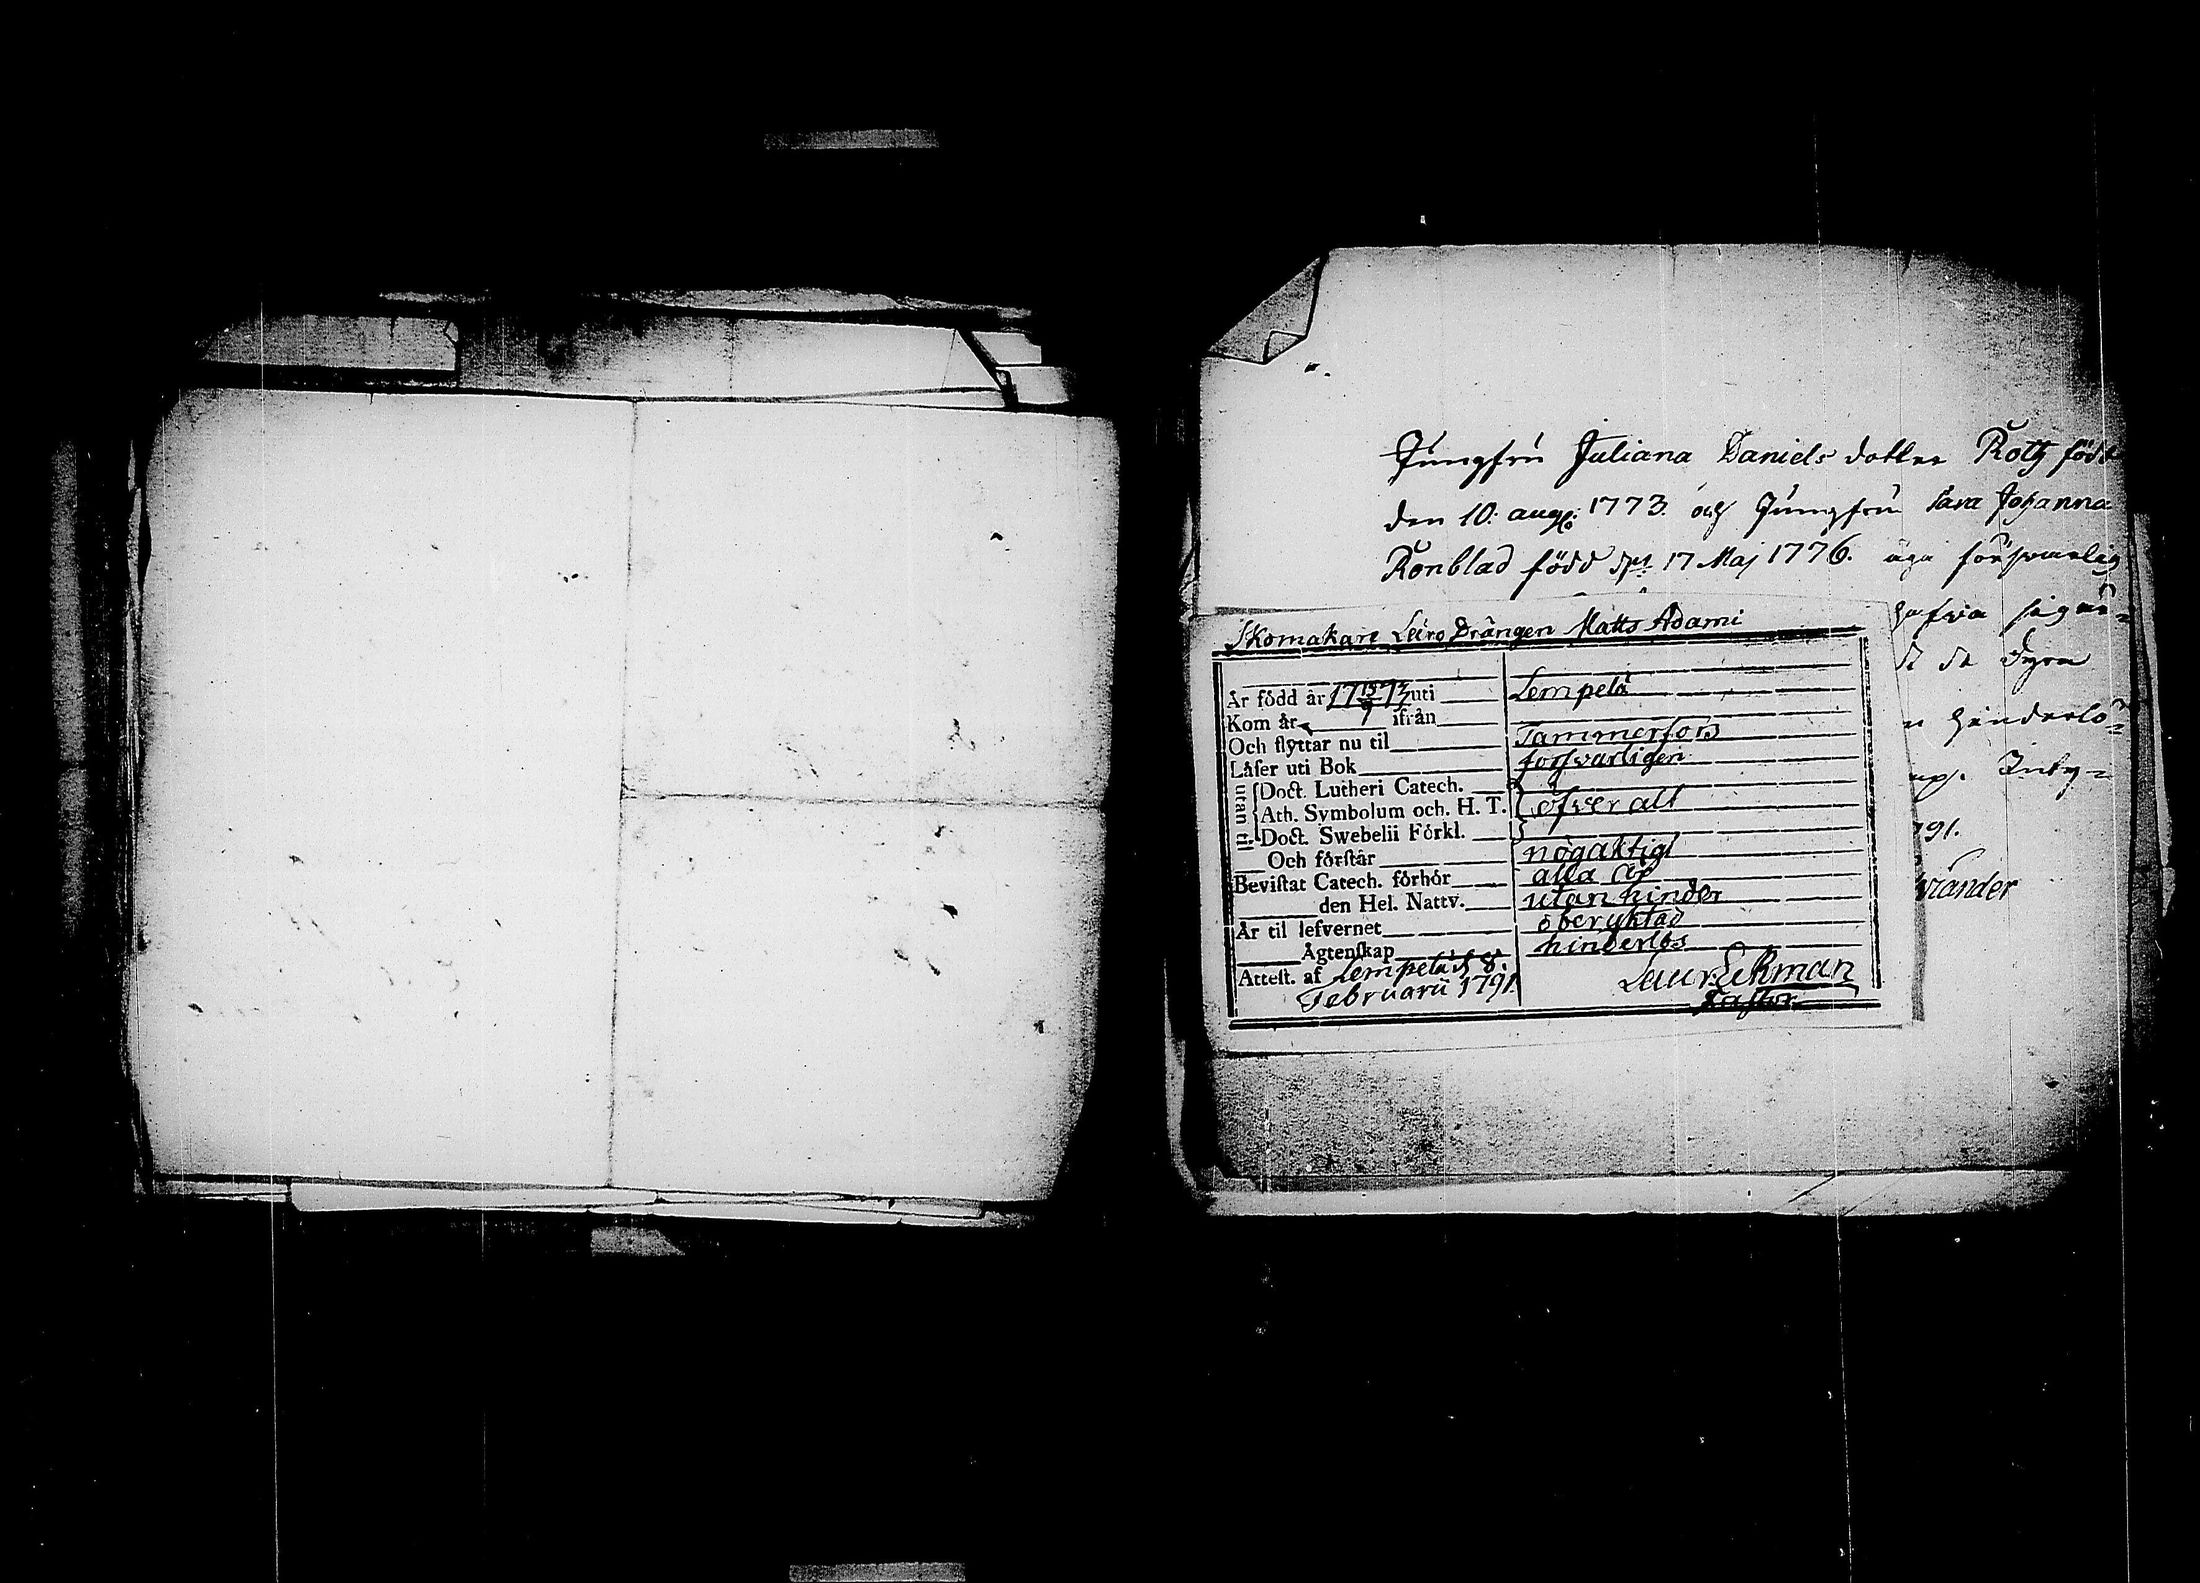 Jungfru Juliana Daniels dotter Roth född
den 10: aug: 1773. och Jungfru Sara Johanna
Ronblad född d. 17 Maj 1776. äga försvarlig
hinderlö-
791.
Skomakare Läro Drängen Matts Adami
År född år 17 73 uti Lempelä
Kom år ifrån
Och flyttar nu til Tammerfors
Låser uti Bok forsvarligen
utan til
Doct. Lutheri Catech.
Ath. Symbolum och. H. T. öfver alt
Doct. Swebelii Förkl.
Och förstår nögaktigt
Bevistat Catech. förhör alla år
den Hel. Nattv. utan hinder
År til lefvernet oberyktad
Ägtenskap hinderlös
Attest. af Lempelä d. 8.
Februarii 1791.
Laur. Ekman
Pastor